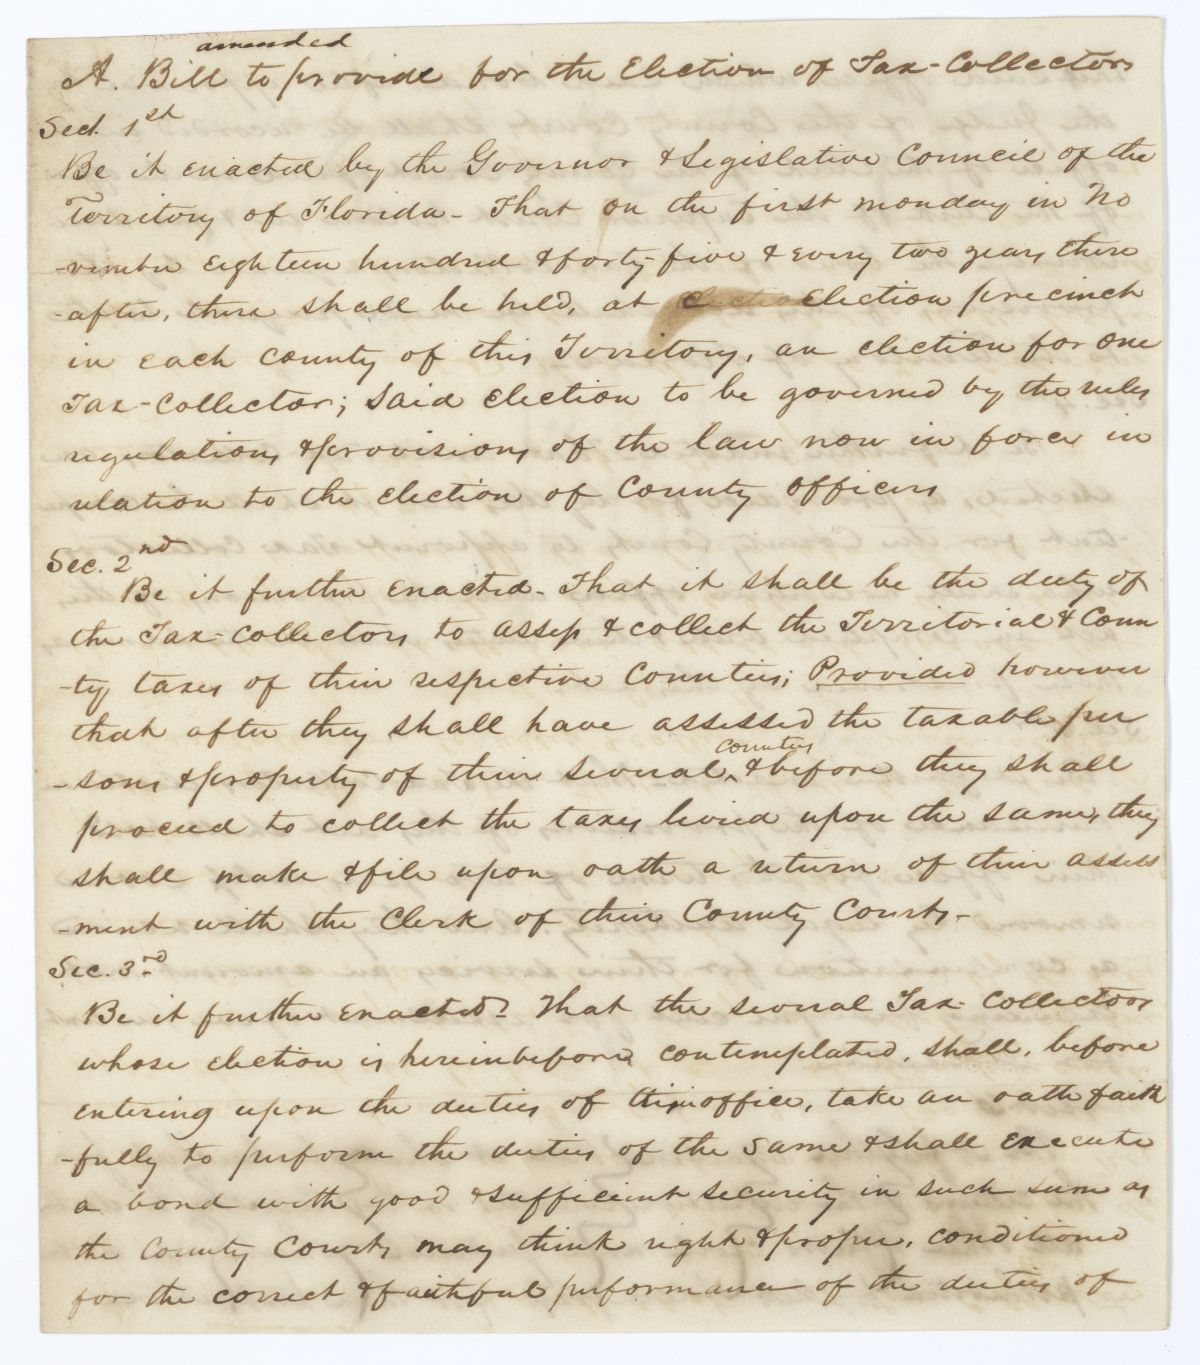 amended
A. Bill to provide for the Election of Tax-Collectors
Sect. 1st
Be it enacted by the Governor & Legislative Council of the
Territory of Florida - That on the first monday in No
-vember eighteen hundred & forty-five & every two years there
-after, there shall be held, at Election precinct
in each County of this Territory, an election for one
Tax-Collector; Said Election to be governed by the rules
regulations & provisions of the law now in force in
relation to the election of County officers
Sec. 2nd
Be it further enacted - That it shall be the duty of
the Tax-Collectors to assess & collect the Territorial & Coun
-ty taxes of their respective Counties; Provided however
that after they shall have assessed the taxable per
counties
-sons & property of their several ^ & before they shall
proceed to collect the taxes levied upon the same, they
shall make & file upon oath a return of their assess
-ment with the Clerk of their County Courts -
Sec. 3rd
Be it further enacted - That the several Tax-Collectors
whose election is hereinbefore contemplated, shall, before
entering upon the duties of their office, take an oath faith
-fully to perform the duties of the same & shall execute
a bond with good & sufficient security in such sum as
the County Courts may think right & proper, conditioned
for the correct & faithful performance of the duties of